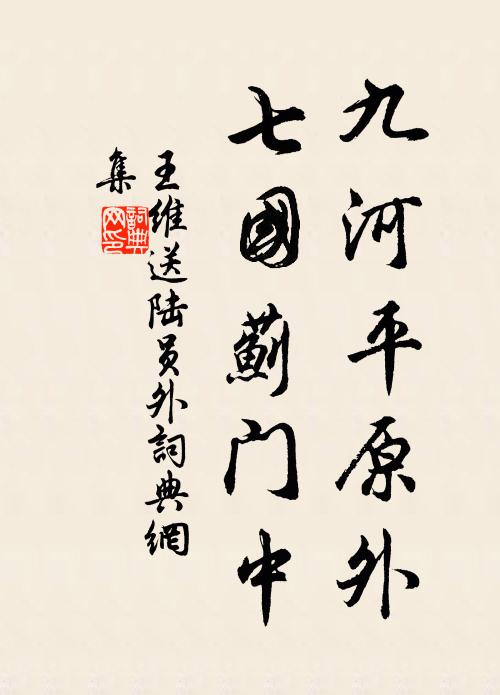 九河平原外
七國蓟门中
王维送陆员外詞典網
集
詞典
网印